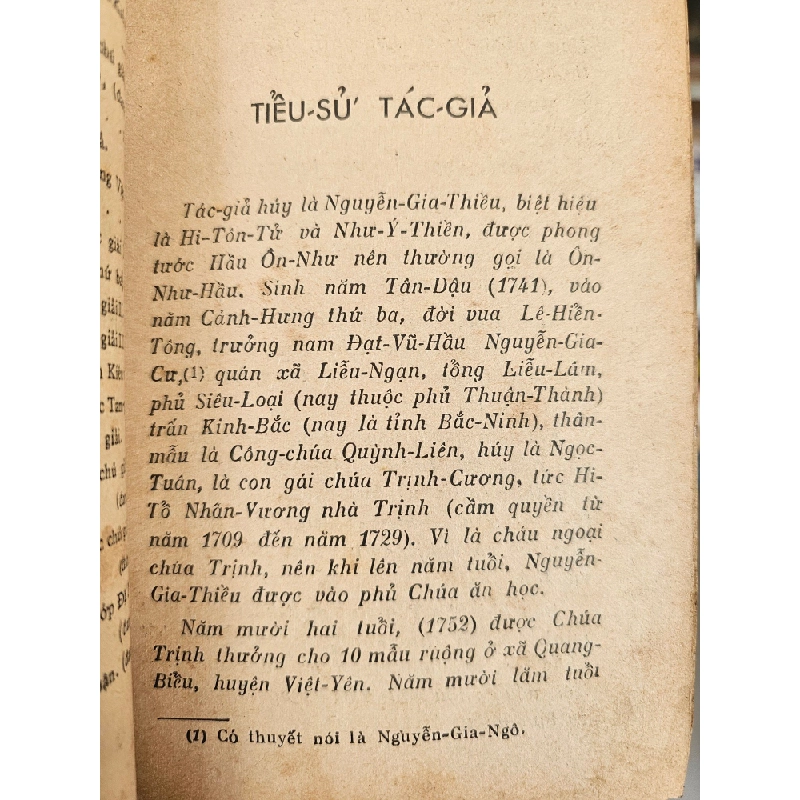 TIỂU-SỬ TÁC-GIẢ
Tác-giả húy là Nguyễn-Gia-Thiều, biệt hiệu
là Hi-Tôn-Tử và Như-Ý-Thiền, được phong
tước Hầu Ôn-Như nên thường gọi là Ôn-
Như-Hầu. Sinh năm Tân-Dậu (1741), vào
năm Cảnh-Hưng thứ ba, đời vua Lê-Hiển-
Tông, trưởng nam Đạt-Vũ-Hầu Nguyễn-Gia-
Cư,(1) quán xã Liễu-Ngạn, tổng Liễu-Lâm,
phủ Siêu-Loại (nay thuộc phủ Thuận-Thành)
trấn Kinh-Bắc (nay là tỉnh Bắc-Ninh), thân-
mẫu là Công-chúa Quỳnh-Liên, húy là Ngọc-
Tuân, là con gái chúa Trịnh-Cương, tức Hi-
Tổ Nhân-Vương nhà Trịnh (cầm quyền từ
năm 1709 đến năm 1729). Vì là cháu ngoại
chúa Trịnh, nên khi lên năm tuổi, Nguyễn-
Gia-Thiều được vào phủ Chúa ăn học.
Năm mười hai tuổi, (1752) được Chúa
Trịnh thưởng cho 10 mẫu ruộng ở xã Quang-
Biều, huyện Việt-Yên. Năm mười lăm tuổi
(1) Có thuyết nói là Nguyễn-Gia-Ngô.